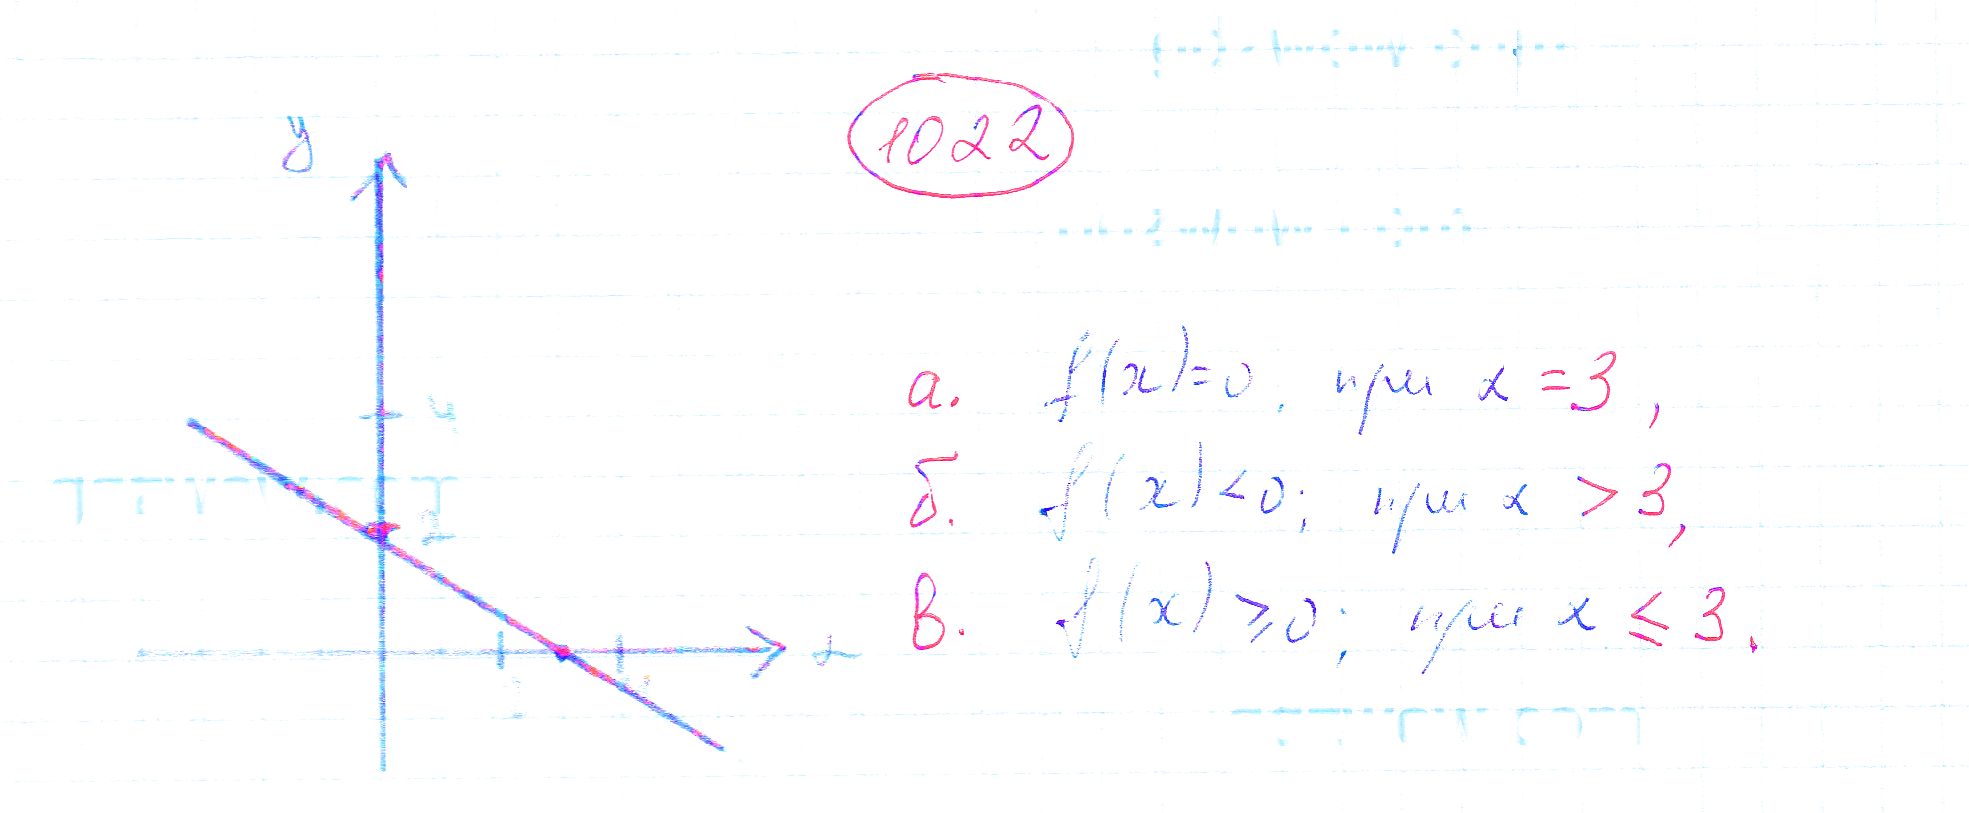 1022
y
4
2
2
4
x
а. f(x)=0, при x =3,
б. f(x)<0; при x >3,
в. f(x)⩾0; при x ≤ 3.